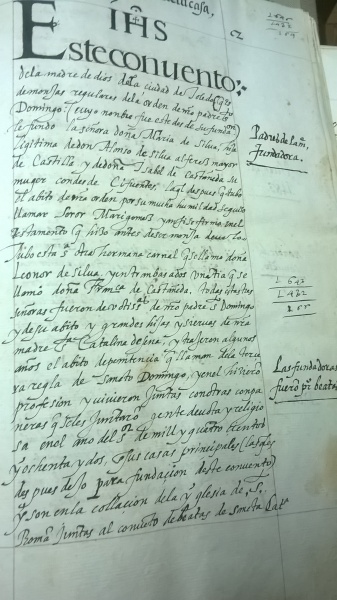 casa,
IHS
Este conuento:
dela madre de dios dela ciudad de Toledo q es
de monjas regulares dela orden de nro padre Sto
Domingo. (cuyo nombre fue este desde su fundaon)
le fundo la señora doña Maria de silua, hija
ligitima de don Alonso de silua alferez mayor
de Castilla y de doña Isabel de Castañeda su
muger condes de Cifuentes. laql despues q tubo
el abito de nra orden, por su mucha humildad se quiso
llamar Soror Mari gomez y en si se firmo en el
testamento q hizo antes de ser monja
tubo esta sa otra hermana carnal q se llamo doña
Leonor de silua, y entrambas vna tia q se
llamo doña Franca de Castañeda, todas estas tres
señoras fueron deuotissas de nro padre So Domingo
y de su abito y grandes hijas y sieruas de nra
madre sa Catalina de sena, y trajeron algunos
años el abito de penitencia q llaman dela terce
ra regla de sancto Domingo, y en el hizieron
profesion y viuieron juntas con otras compa
ñeras q se les juntaron gente deuota y religio
sa en el ano del sr de mill y quatro cientos
y ochenta y dos, e sus casas principales (las qles
despues dejo para fundacion deste conuento)
q son en la collacion dela yglesia de S.
Roman juntas al conuento de beatas de sancta Cata
Padres de la sa
fundadora.
Las fundadoras
fuero pro beatas